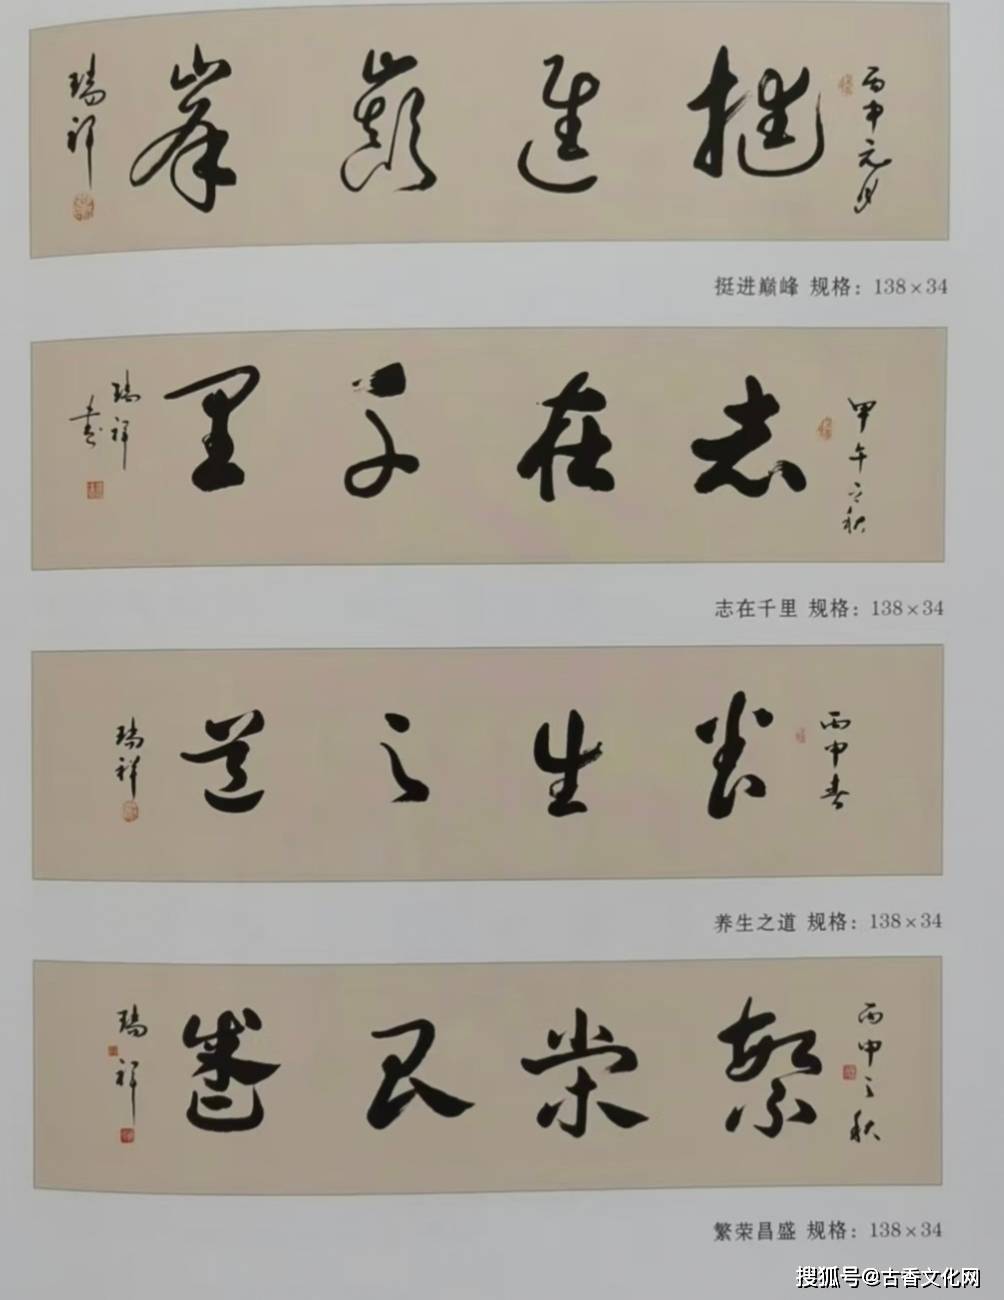 丙申元月
挺進巔峯
瑞祥
挺进巅峰 规格：138×34
甲午之秋
志在千里
瑞祥
書
志在千里 规格：138×34
丙申春
養生之道
瑞祥
养生之道 规格：138×34
丙申之秋
繁榮昌盛
瑞祥
繁荣昌盛 规格：138×34
搜狐号@古香文化网